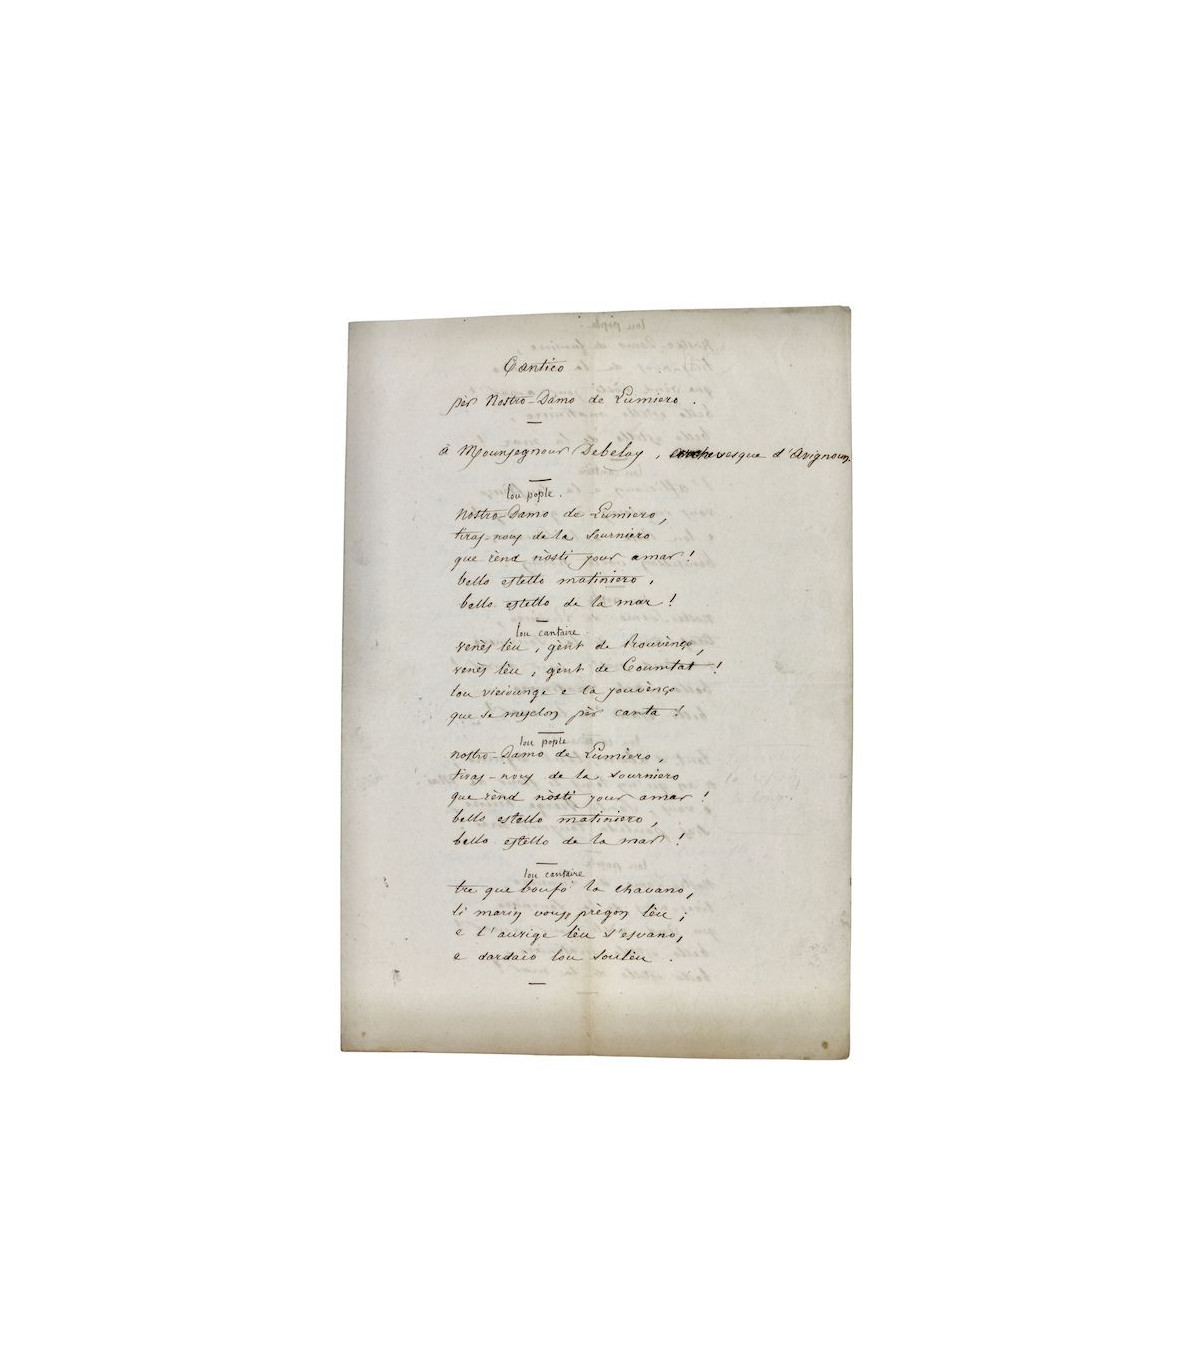 Cantico
pèr Nostro-Damo de Lumiero.
à Mounsegnour Debelay, archevesque d'Avignoun.
lou pople.
Nostro-Damo de Lumiero,
tiras-nous de la sourniero
que rènd nòsti jour amar!
bello estello matiniero,
bello estello de la mar!
lou cantaire.
venès lèu, gènt de Prouvènço,
venès lèu, gènt de Coumtat!
lou vieiounge e la jouvènço
que se mesclon pèr canta!
lou pople
nostro-Damo de Lumiero,
tiras-nous de la sourniero
que rènd nòsti jour amar!
bello estello matiniero,
bello estello de la mar!
lou cantaire
tre que boufo la chavano,
li marin vous prègon lèu;
e l'aurige lèu s'esvano,
e dardaio lou soulèu.